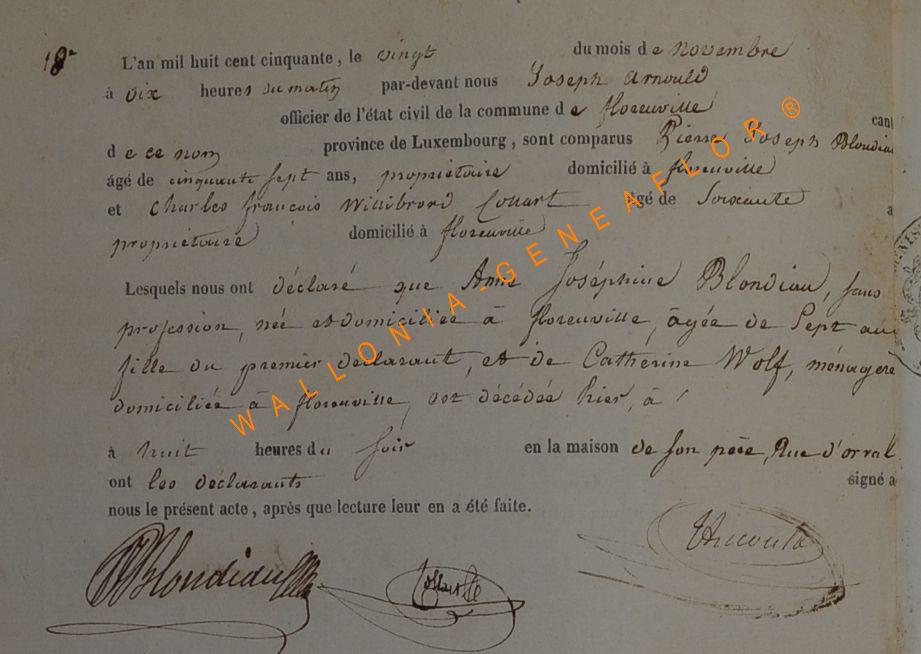 18e
L'an mil huit cent cinquante, le vingt du mois de novembre
à dix heures du matin par-devant nous Joseph Arnould
officier de l'état civil de la commune de florenville can
de ce nom province de Luxembourg, sont comparus Pierre Joseph Blondiau
âgé de cinquante sept ans, propriétaire domicilié à florenville
et Charles françois Willibrord Collart âgé de Soixante a
propriétaire domicilié à florenville
Lesquels nous ont déclaré que Anne Joséphine Blondiau, sans
profession, née et domiciliée à florenville, âgée de Sept an
fille du premier déclarant, et de Catherine Wolf, ménagère
domiciliée à florenville, est décédée hier, à
à huit heures du soir en la maison de son père, Rue d'orval
ont les déclarants signé a
nous le présent acte, après que lecture leur en a été faite.
Blondiau
WALLONIA-GENEAFLOR®